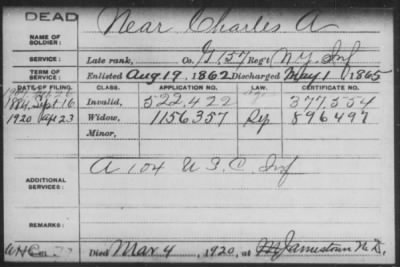 DEAD
NAME OF SOLDIER: Near Charles A
SERVICE: Late rank, Co. G 157 Reg't N.Y. Inf
TERM OF SERVICE: Enlisted Aug 19, 1862 Discharged May 1 1865
DATE OF FILING. CLASS. APPLICATION NO. LAW. CERTIFICATE NO.
1884, Sept 16 Invalid, 522.422 377,554
1920 Ap 23 Widow, 1156357 896497
Minor,
ADDITIONAL SERVICES: A 104 U S C Inf
REMARKS:
Died Mar 4, 1920, at Jamestown N.D.